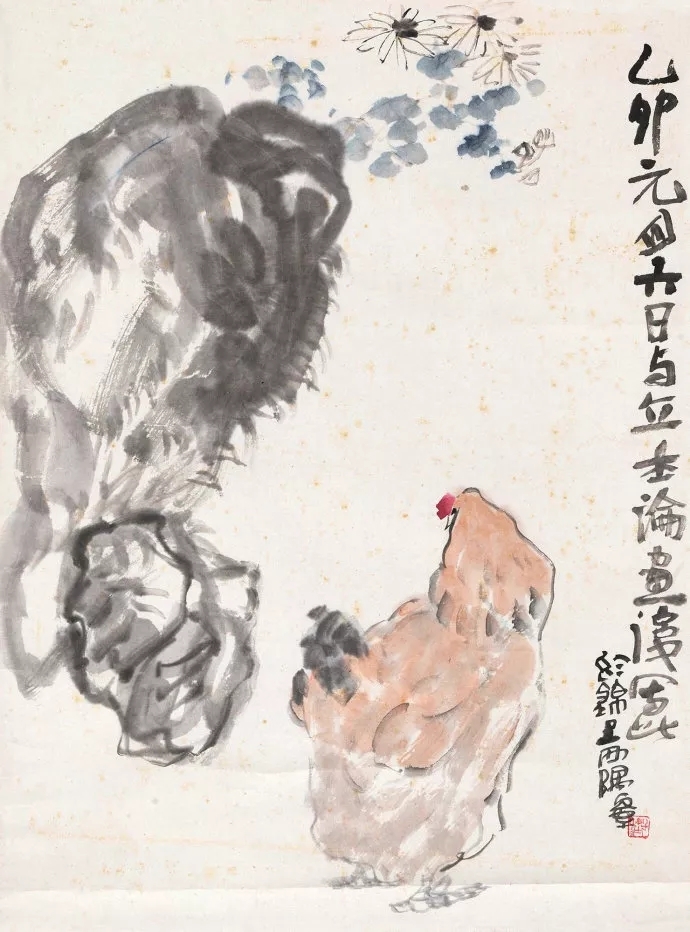 乙卯元月六日与立士論畫後寫此
於錦里西隅